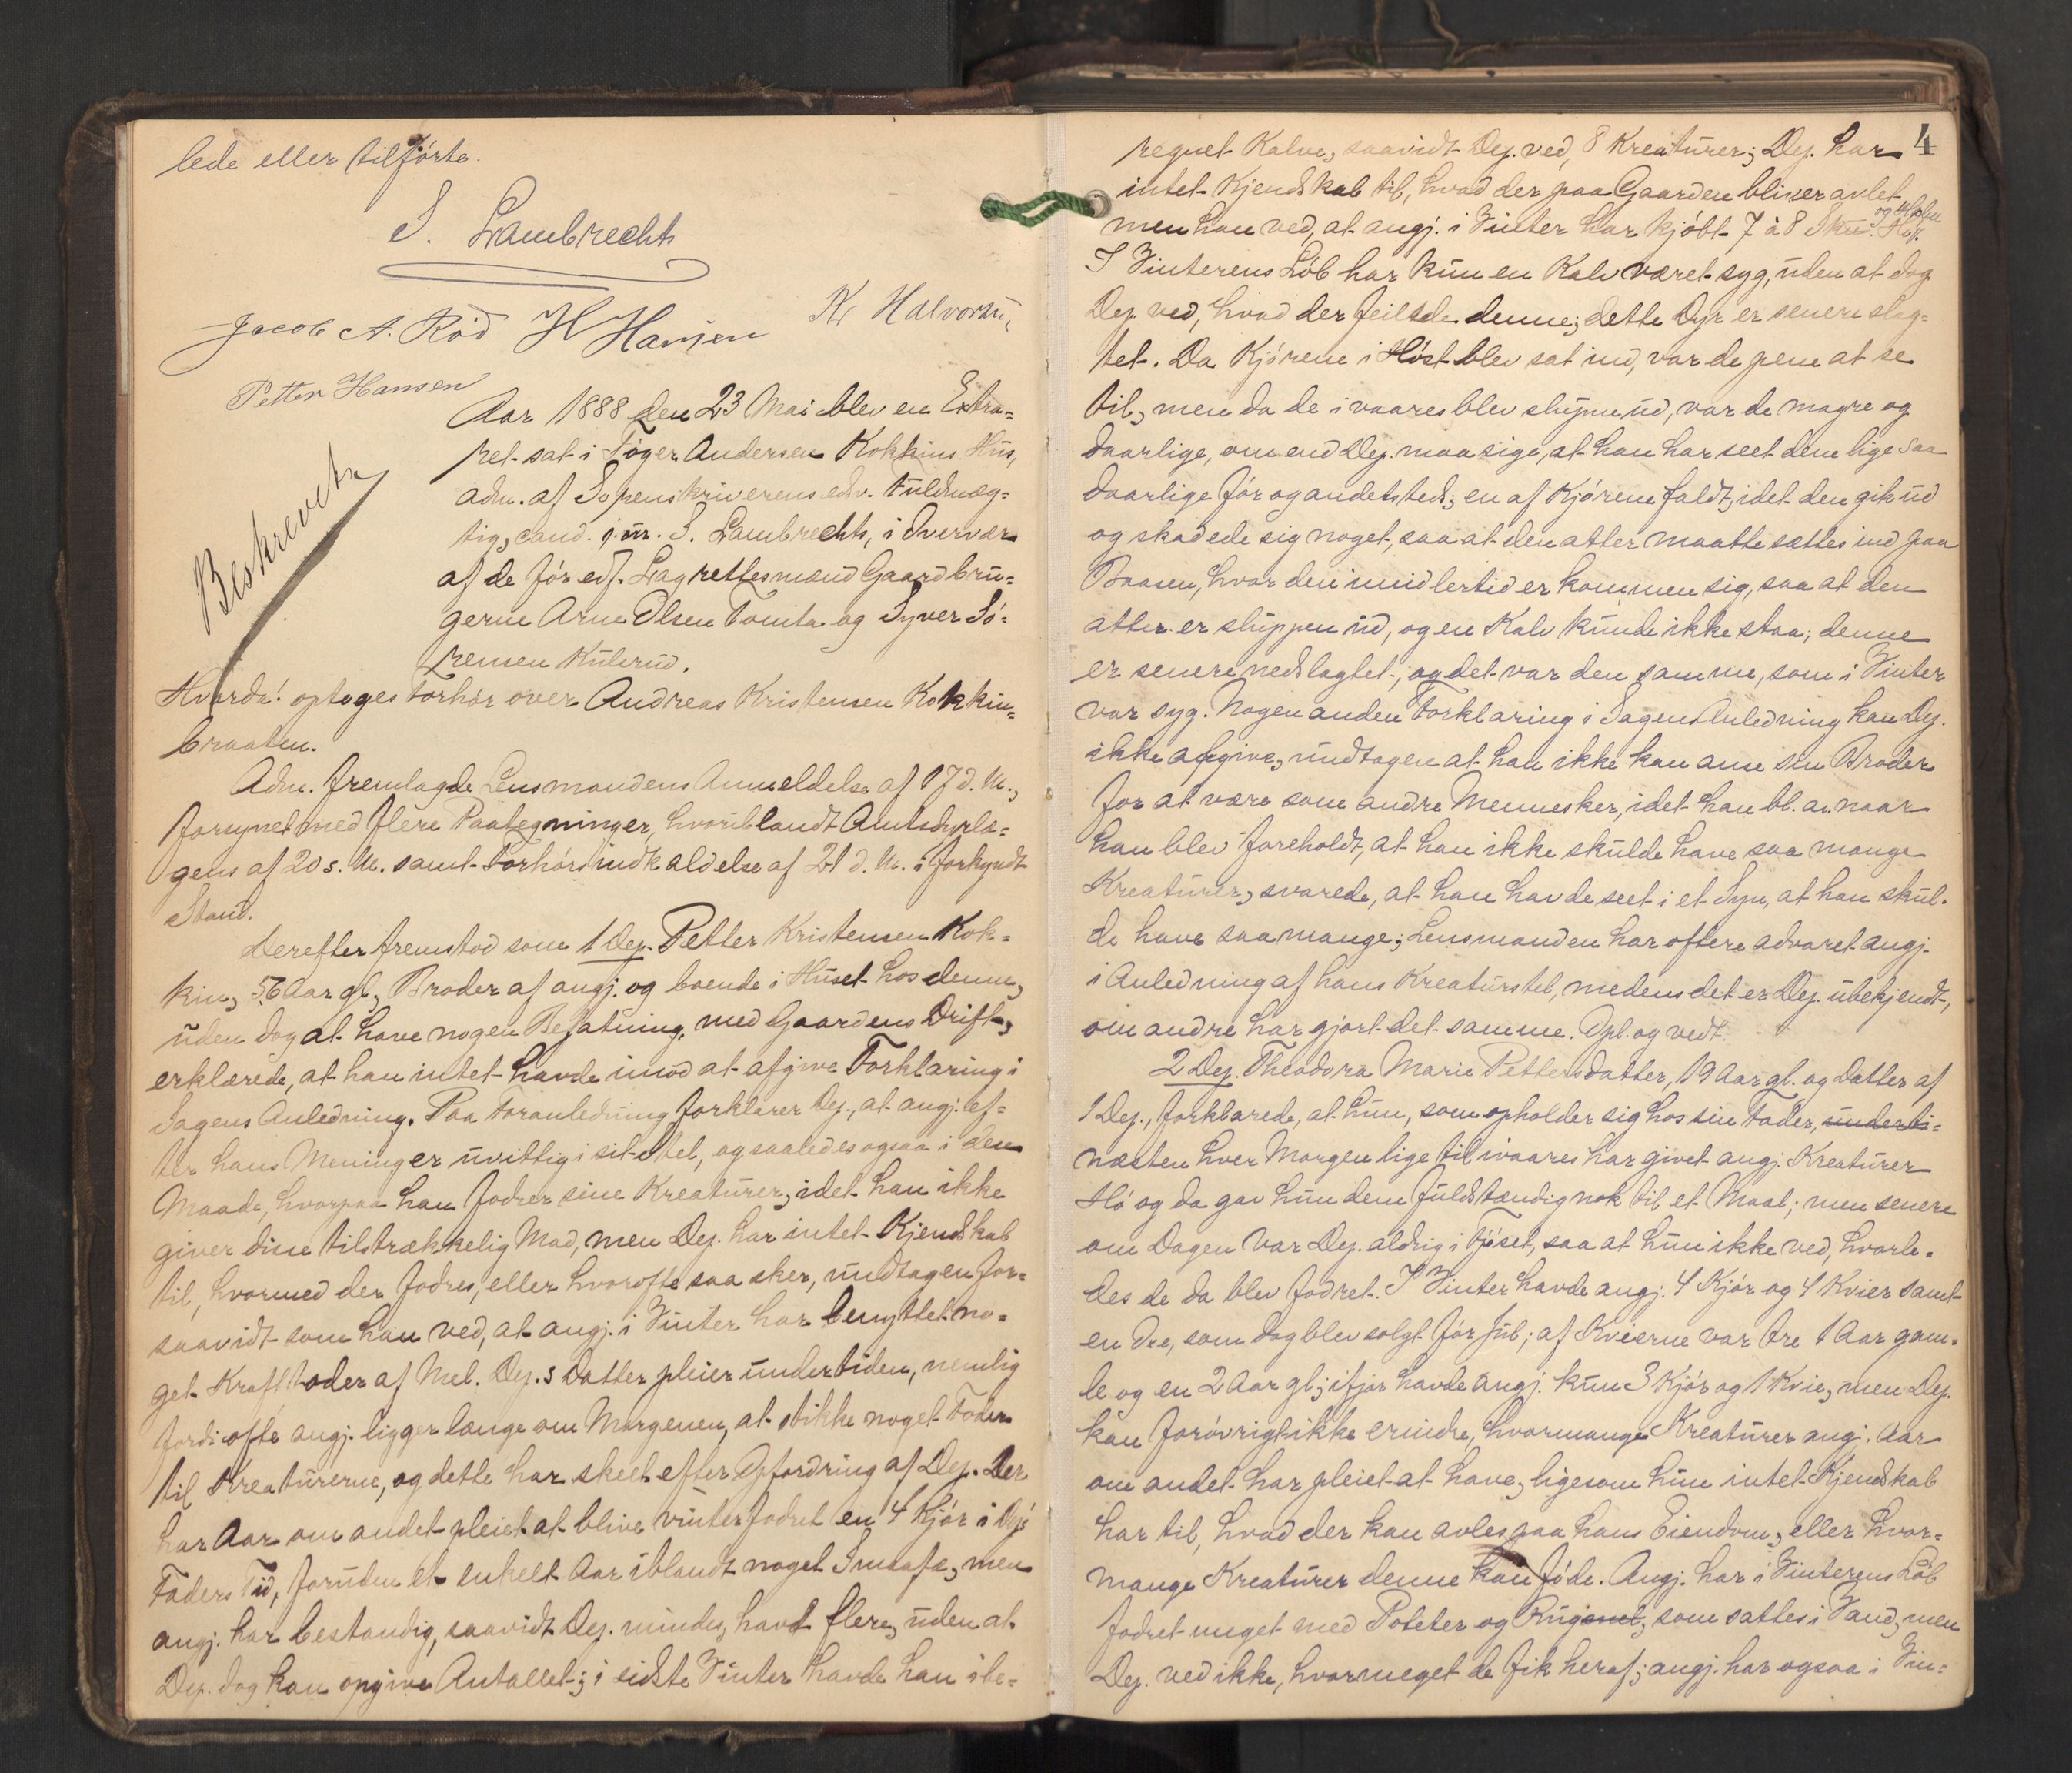 lede eller tilførte.
S. Lambrechts
Jacob A. Rød H Hansen Kr Halvorsen
Petter Hansen
Aar 1888 den 23 Mai blev en Extra-
ret sat i Tøger Andersen Kokkins Hus,
adm. af Sorenskriverens edsv. Fuldmæg-
tig, cand. jur. S. Lambrechts, i Overvær
af de før edf. Lagrettesmænd Gaardbru-
gerne Arne Olsen Tomta og Syver Sø-
rensen Kulerud.
Beskrevet
Hvorda! optoges Forhør over Andreas Kristensen Kokkin-
braaten.
Adm. fremlagde Lensmandens Anmeldelse af 17 d. M.,
forsynet med flere Paategninger, hvoriblandt Amtsdyrlæ-
gens af 20 s. M. samt Forhørsindkaldelse af 21 d. M. i forkyndt
Stand.
Derefter fremstod som 1 Dep. Petter Kristensen Kok-
kin, 56 Aar gl., Broder af angj. og boende i Huset hos denne,
uden dog at have nogen Befatning med Gaardens Drift,
erklærede, at han intet havde imod at afgive Forklaring i
Sagens Anledning. Paa Foranledning forklarer Dep., at angj. ef-
ter hans Mening er uvittig i sit Stel, og saaledes ogsaa i den
Maade, hvorpaa han fodrer sine Kreaturer, idet han ikke
giver disse tilstrækkelig Mad, men Dep. har intet Kjendskab
til, hvormed der fodres, eller hvorofte saa sker, undtagen for-
saavidt som han ved, at angj. i Vinter har benyttet no-
get Kraftfoder af Mel. Dep.s Datter pleier undertiden, nemlig
fordi ofte angj. ligger længe om Morgenen, at stikke noget Foder
til Kreaturerne, og dette har skeet efter Opfordring af Dep. Der
har Aar om andet pleiet at blive vinterfodret en 4 Kjør i Dep's
Faders Tid, foruden et enkelt Aar iblandt noget Smaafæ, men
angj. har bestandig, saavidt Dep. mindes, havt flere, uden at
Dep. dog kan opgive Antallet; i sidste Vinter havde han ibe-
4
regnet Kalve, saavidt Dep. ved, 8 Kreaturer; Dep. har
intet Kjendskab til, hvad der paa Gaarden bliver avlet
men han ved, at angj. i Vinter har kjøbt 7 à 8 Skpd. Høi.
I Vinterens Løb har kun en Kalv været syg, uden at dog
Dep. ved, hvad der feilede denne; dette Dyr er senere slag-
tet. Da Kjørene i Høst blev sat ind, var de pene at se
til, men da de i vaares blev sluppen ud, var de magre og
daarlige, om end Dep. maa sige, at han har seet dem lige saa
daarlige før og andetsteds; en af Kjørene faldt, idet den gik ud
og skadede sig noget, saa at den atter maatte sættes ind paa
Baasen, hvor den imidlertid er kommen sig, saa at den
atter er sluppen ud, og en Kalv kunde ikke staa; denne
er senere nedslagtet, og det var den samme, som i Vinter
var syg. Nogen anden Forklaring i Sagens Anledning kan Dep.
ikke afgive, undtagen at han ikke kan anse sin Broder
for at være som andre Mennesker, idet han bl. a. naar
han blev foreholdt, at han ikke skulde have saa mange
Kreaturer, svarede, at han havde seet i et Syn, at han skul-
de have saa mange; Lensmanden har oftere advaret angj.
i Anledning af hans Kreaturstel, medens det er Dep. ubekjendt,
om andre har gjort det samme. Opl. og vedt.
2 Dep. Theodora Marie Pettersdatter, 19 Aar gl. og Datter af
1 Dep., forklarede, at hun, som opholder sig hos sin Fader, underti-
næsten hver Morgen lige til ivaares har givet angj. Kreaturer
Hø og da gav hun dem fuldstændig nok til et Maal; men senere
om Dagen var Dep. aldrig i Fjøset, saa at hun ikke ved, hvorle-
des de da blev fodret. I Vinter havde angj. 4 Kjør og 4 Kvier samt
en Oxe, som dog blev solgt før Jul; af Kvierne var tre 1 Aar gam-
le og en 2 Aar gl; ifjor havde angj. kun 3 Kjør og 1 Kvie, men Dep.
kan forøvrigt ikke erindre, hvormange Kreaturer angj. Aar
om andet har pleiet at have, ligesom hun intet Kjendskab
har til, hvad der kan avles paa hans Eiendom, eller hvor-
mange Kreaturer denne kan føde. Angj. har i Vinterens Løb
fodret meget med Poteter og Rug, som sattes i Vand, men
Dep. ved ikke, hvormeget de fik heraf; angj. har ogsaa i Vin-